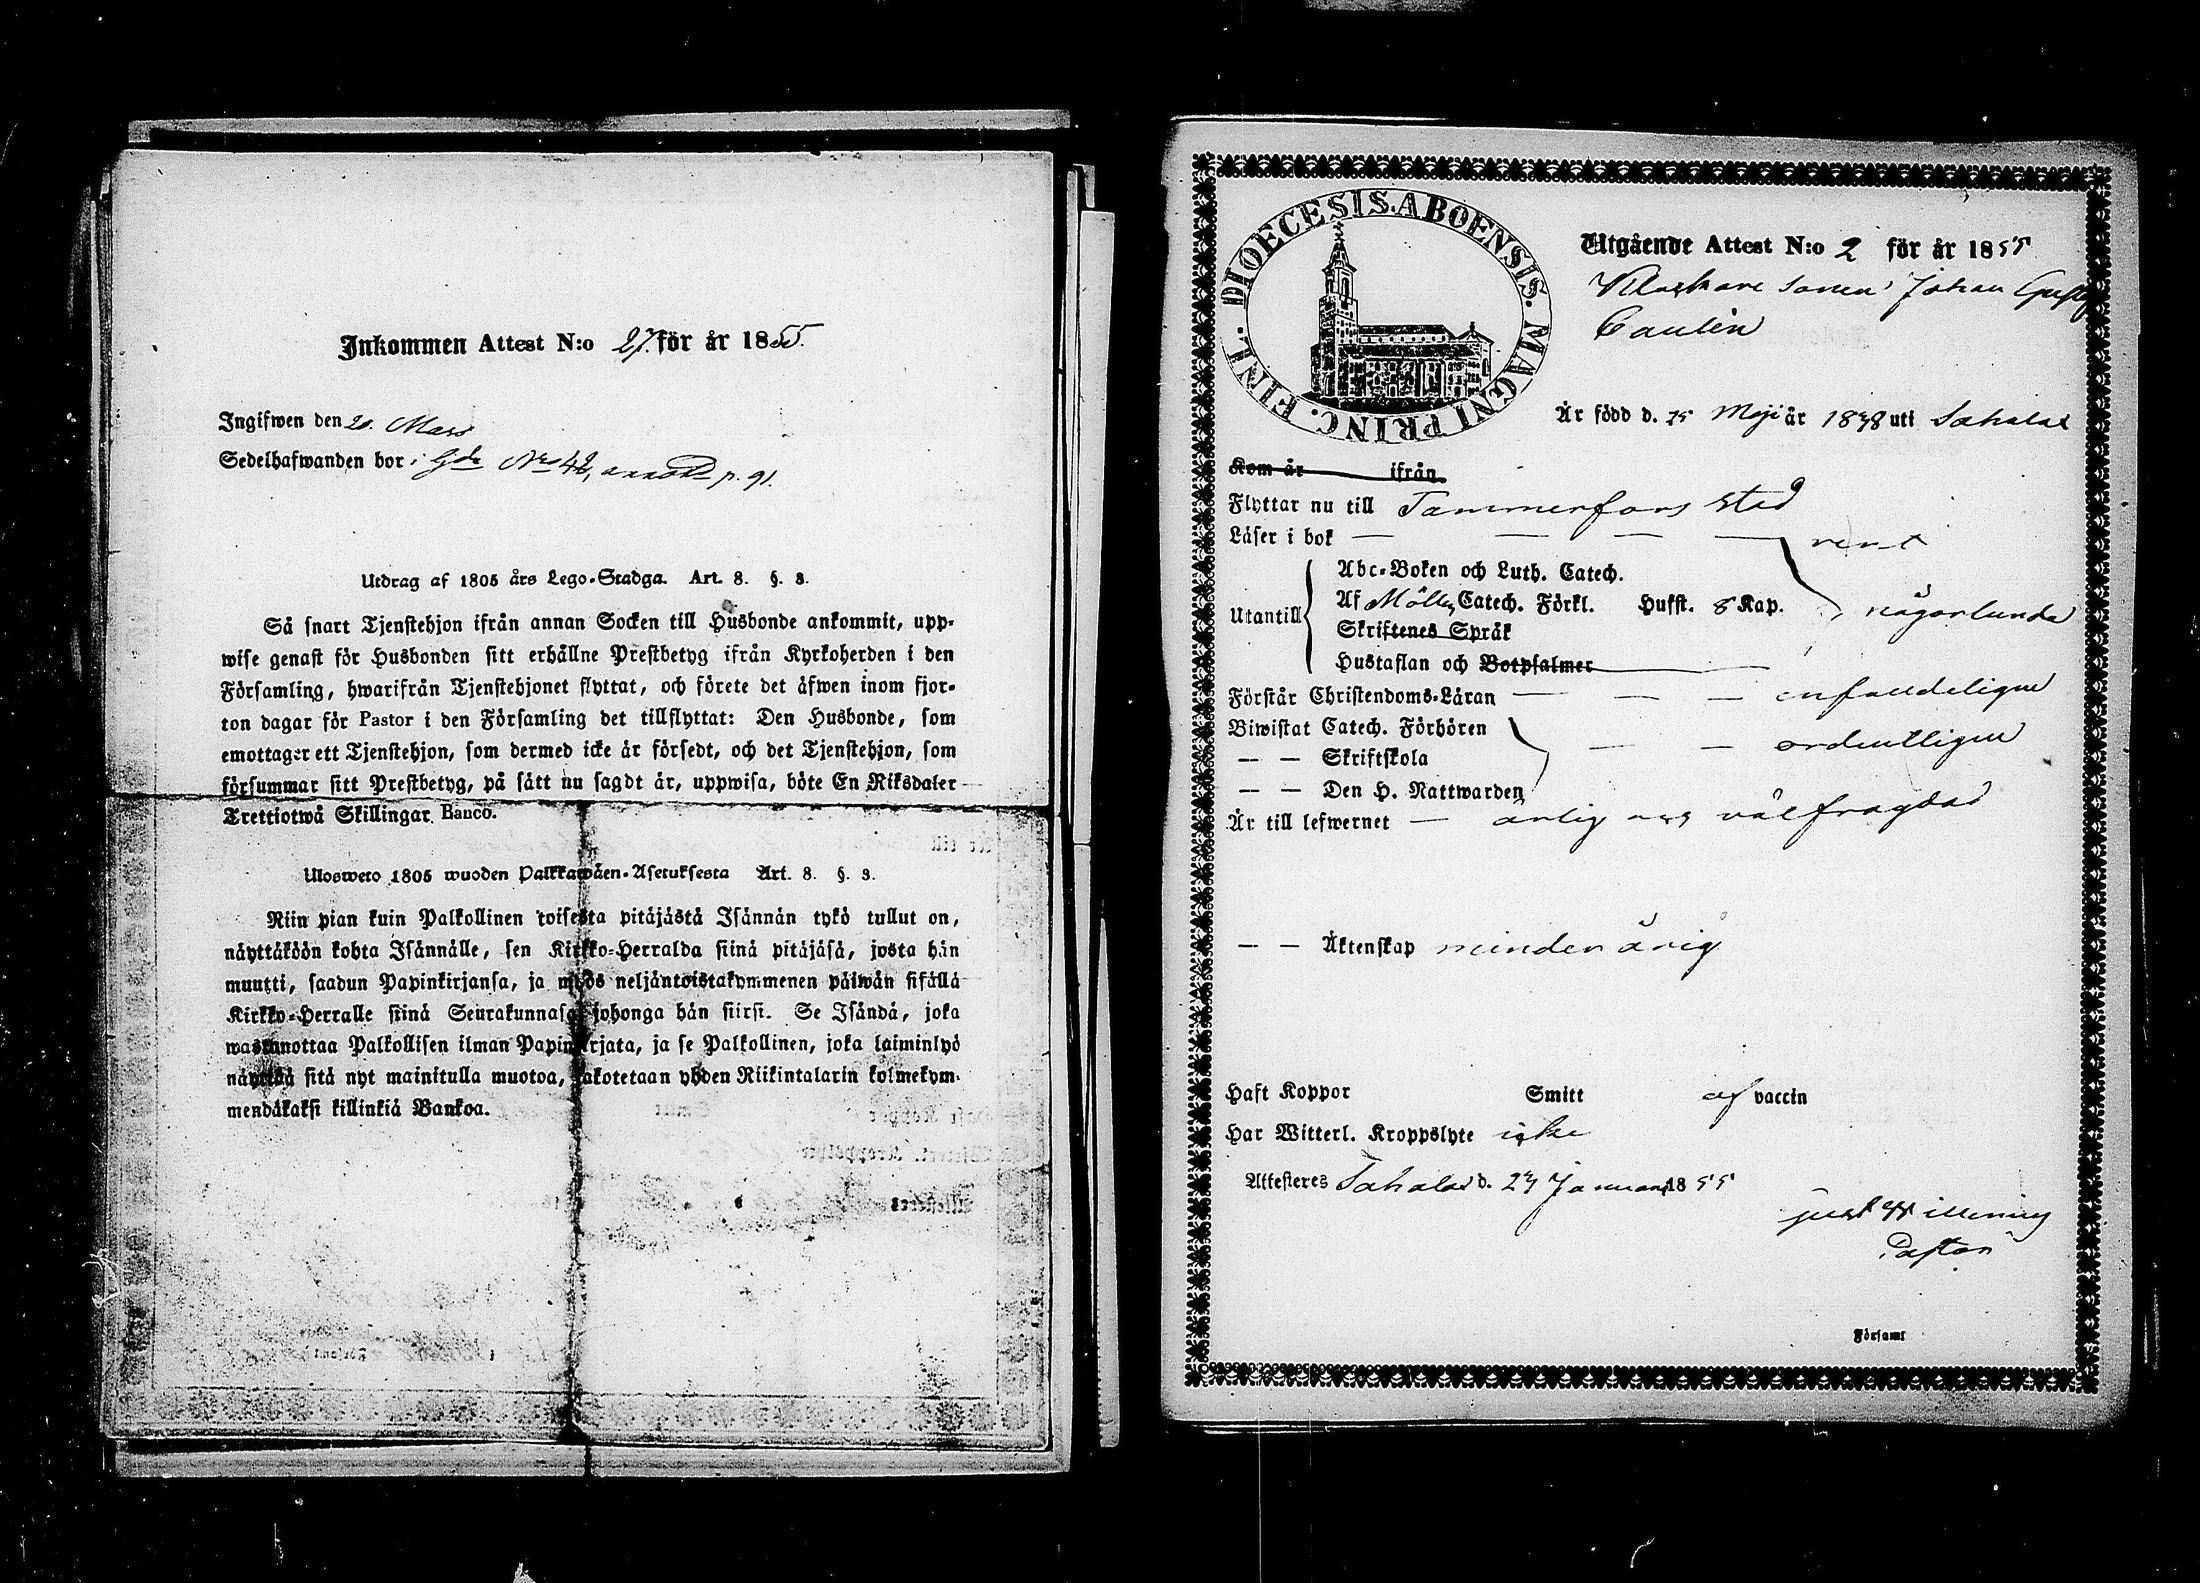 Inkommen Attest N:o 27. för år 1855.
Ingifwen den 20. Mars
Sedelhafwanden bor i Gdn Nro 42, annotd p. 91.
Utdrag af 1805 års Lego-Stadga. Art. 8. §. 3.
Så snart Tjenstehjon ifrån annan Socken till Husbonde ankommit, upp-
wise genast för Husbonden sitt erhållne Prestbetyg ifrån Kyrkoherden i den
Församling, hwarifrån Tjenstehjonet flyttat, och förete det äfwen inom fjor-
ton dagar för Pastor i den Församling det tillflyttat: Den Husbonde, som
emottager ett Tjenstehjon, som dermed icke är försedt, och det Tjenstehjon, som
försummar sitt Prestbetyg, på sätt nu sagdt är, uppwisa, böte En Riksdaler
Trettiotwå Skillingar Banco.
Ulosweto 1805 wuoden Palkkawäen-Asetuksesta Art. 8. §. 3.
Niin pian kuin Palkollinen toisesta pitäjästä Isännän tykö tullut on,
näyttäköön kohta Isännälle, sen Kirkko-Herralda siinä pitäjäsä, josta hän
muutti, saadun Papinkirjansa, ja myös neljäntoistakymmenen päiwän sisällä
Kirkko-Herralle siinä Seurakunnasa johonga hän siirsi. Se Isändä, joka
wastanottaa Palkollisen ilman Papinkirjata, ja se Palkollinen, joka laiminlyö
näyttää sitä nyt mainitulla muotoa, sakotetaan yhden Riikintalarin kolmekym-
mendäkaksi killinkiä Bankoa.
DIOECESIS. ABOENSIS. MAGNI PRINC. FINL.
Utgående Attest N:o 2 för år 1855
Klockare sonen Johan Gustaf
Caulén
Är född d. 15 Maji år 1838 uti Sahalax
Kom år ifrån
Flyttar nu till Tammerfors stad
Läser i bok — — — — rent
Abc-Boken och Luth. Catech.
Utantill Af Möllers Catech. Förkl. Hufst. 8 Kap. någorlunda
Skriftenes Språk
Hustaflan och Botpsalmer
Förstår Christendoms-Läran — — — enfaldeligen
Biwistat Catech. Förhören
— — Skriftskola — — ordentligen
— — Den H. Nattwarden
Är till lefwernet — ärlig och välfrägdad
— — Äktenskap minderårig
Haft Koppor Smitt af vaccin
Har Witterl. Kroppslyte icke
Attesteres Sahalax d. 23 Januari 1855
Just Willening
Pastor
Församl